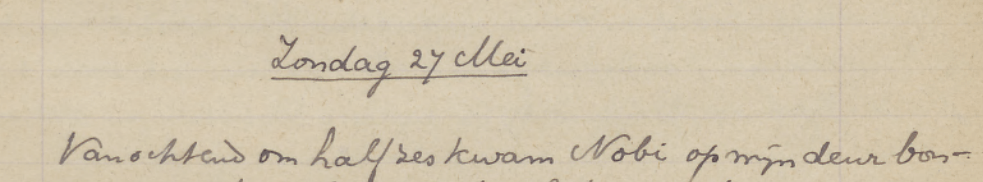 Zondag 27 Mei
Vanochtend om half zes kwam Nobi op mijn deur bon-